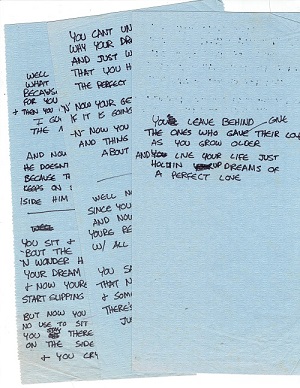 YOU CANT UN
WHY YOUR DR
AND JUST W
THAT YOU H
THE PERFECT
'N' NOW YOUR GE
IF IT IS GOING
-N' NOW YOU
AND THING
ABOUT
WELL N
SINCE YOU
AND NOW
YOURE RE
W/ ALL
YOU SA
THAT N
& SOM
THERE'S
JU
WELL
WHAT
BECAUS
FOR YOU
+ THEN YOU
I GO
THE
AND NOW
HE DOESNT
BECAUSE TH
KEEPS ON
ISIDE HIM
YOU SIT &
'BOUT THE
'N WONDER H
YOUR DREAM
& NOW YOURE
START SLIPPING
BUT NOW YOU
NO USE TO SIT
YOU STAY THERE
ON THE SIDE
& YOU CRY
YOU LEAVE BEHIND
THE ONES WHO GAVE THEIR LOV
AS YOU GROW OLDER
AND YOU LIVE YOUR LIFE JUST
HOLDIN DREAMS OF
A PERFECT LOVE